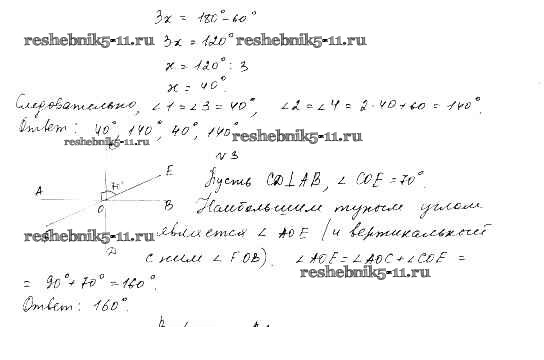 3x = 180° - 60°
reshebnik5-11.ru 3x = 120° reshebnik5-11.ru
x = 120° : 3
x = 40°.
Следовательно, ∠1 = ∠3 = 40°, ∠2 = ∠4 = 2·40 + 60 = 140°.
Ответ: 40°, 140°, 40°, 140° reshebnik5-11.ru
reshebnik5-11.ru
√3
E
Пусть CD⊥AB, ∠COE = 70°.
A O B
Наибольшим тупым углом
reshebnik5-11.ru является ∠AOE (и вертикальный
D
с ним ∠FOB). ∠AOE = ∠AOC + ∠COE =
reshebnik5-11.ru
= 90° + 70° = 160°.
Ответ: 160°.